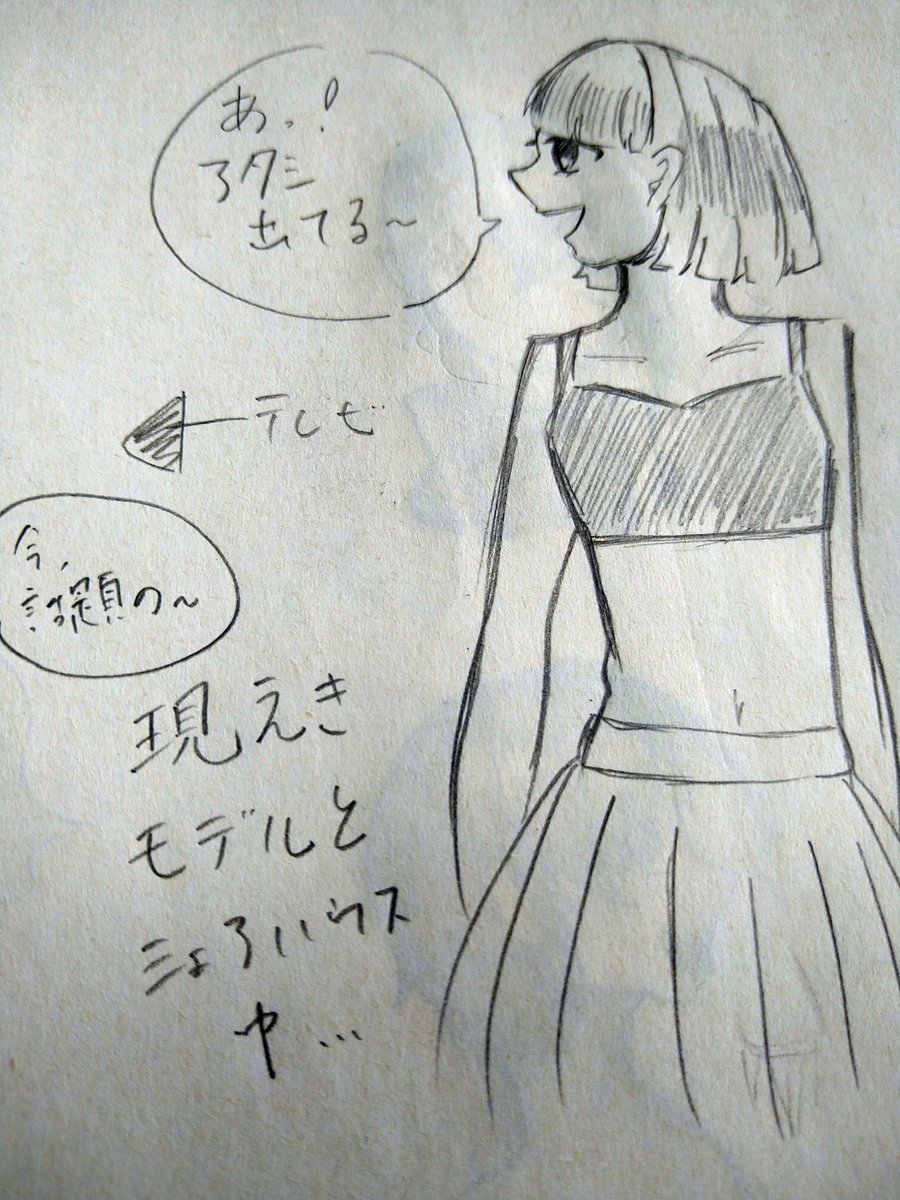 あっ!
アタシ
出てる～
テレビ
今、
話題の～
現えき
モデルと
シェアハウス
中…